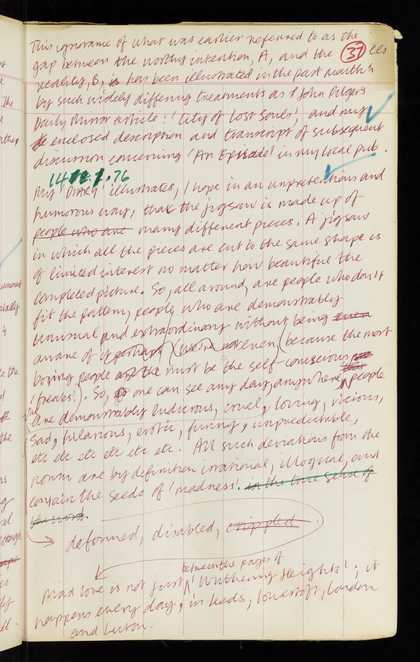 This ignorance of what was earlier referred to as the
gap between the worthy intention, A, and the 37
reality, B, is has been illustrated in the past month
by such widely differing treatments as John Pilger's
Daily Mirror article: 'City of Lost Souls', and my
enclosed description and transcript of subsequent
discussion concerning 'An Episode' in my local pub.
14.2.76
My 'DIARY' illustrated, I hope in an unpretentious and
humorous way, that the jigsaw is made up of
people who are many different pieces. A jigsaw
in which all the pieces are cut to the same shape is
of limited interest no matter how beautiful the
completed picture. So, all around, are people who don't
fit the pattern, people who are demonstrably
unusual and extraordinary without being
aware of it (because the most
boring people are must be the self-conscious
'freaks'). So, one can see any day, anywhere, people
are demonstrably ludicrous, cruel, loving, vicious,
sad, hilarious, erotic, funny, unpredictable,
etc etc etc etc etc. All such deviations from the
norm are by definition irrational, illogical, and
contain the seeds of 'madness'. in the true sense of
the word.
deformed, disabled, crippled
between the pages of
Mad love is not just 'Wuthering Heights'; it
happens every day, in Leeds, Lowestoft, London
and Luton.